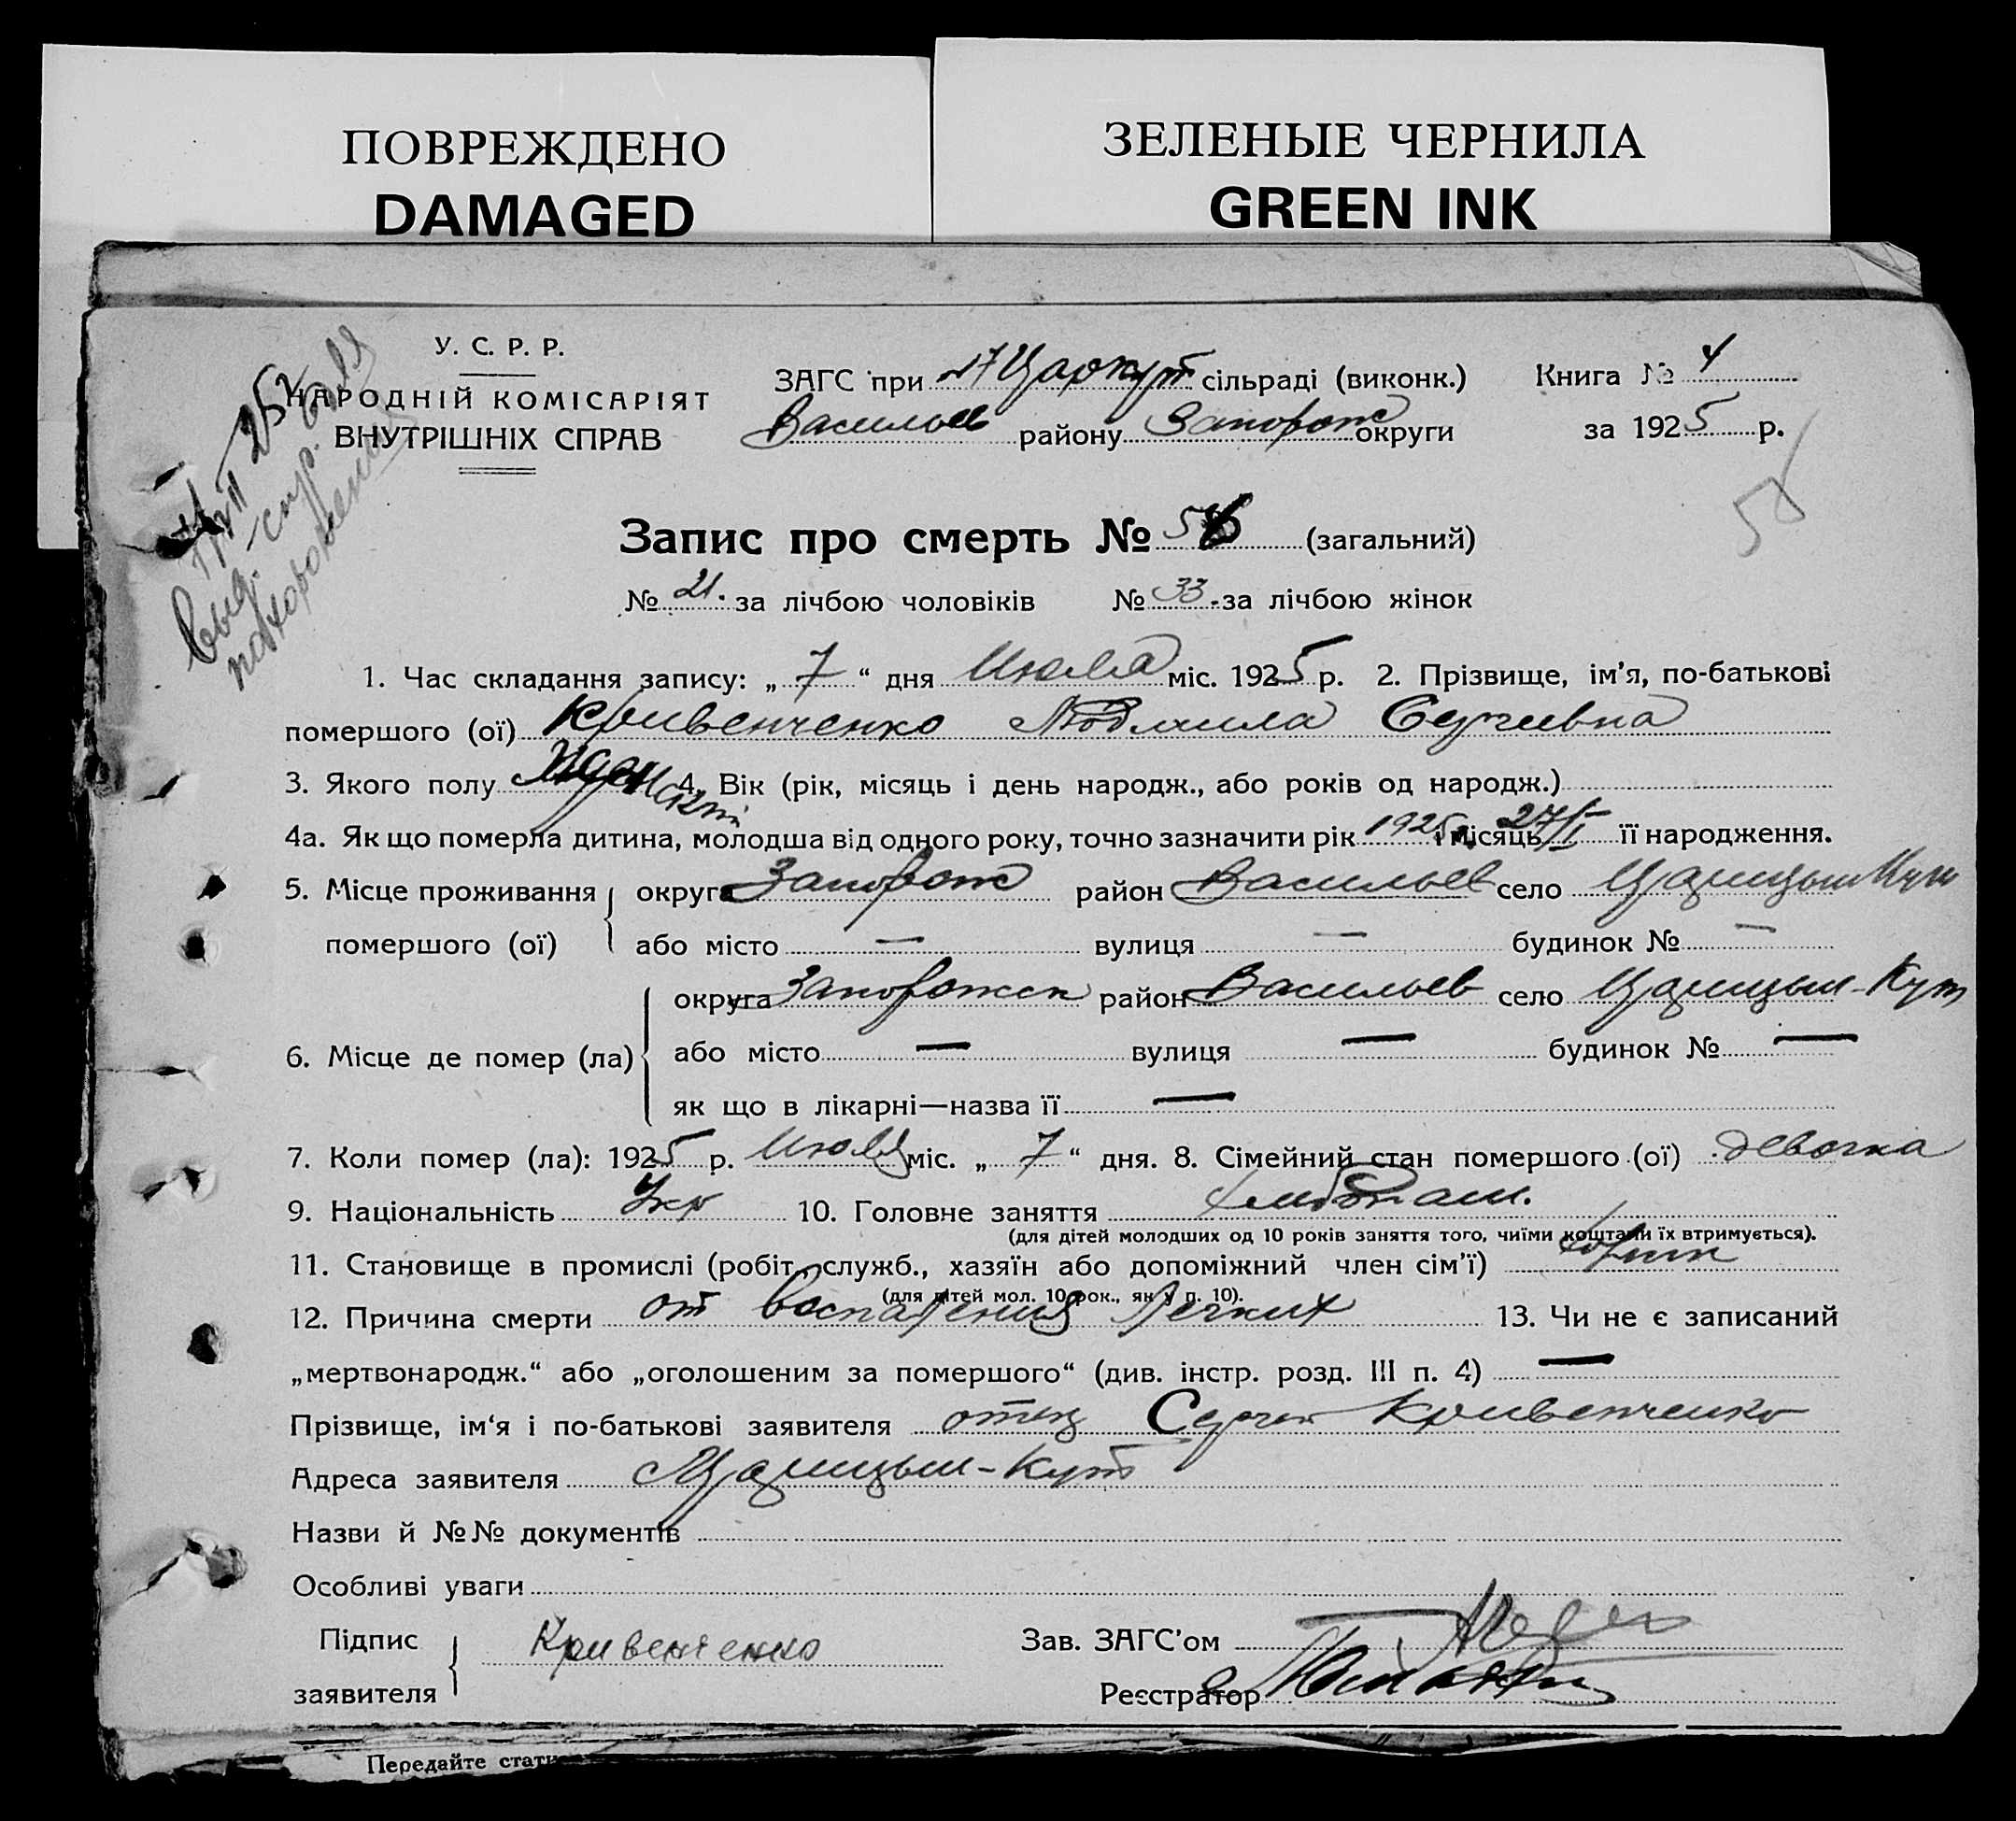 ПОВРЕЖДЕНО
DAMAGED
ЗЕЛЕНЫЕ ЧЕРНИЛА
GREEN INK
У. С. Р. Р.
НАРОДНІЙ КОМІСАРІЯТ
ВНУТРІШНІХ СПРАВ
ЗАГС при Царкут сільраді (виконк.)
Васильев району Запорож округи
Книга № 4
за 1925 р.
Запис про смерть № (загальний)
№ 21. за лічбою чоловіків № 33. за лічбою жінок
1. Час складання запису: „ 7 “ дня Июля міс. 1925 р. 2. Прізвище, ім’я, по-батькові
помершого (ої) Кривенченко Людмила Сергиевна
3. Якого полу 4. Вік (рік, місяць і день народж., або років од народж.)
4а. Як що померла дитина, молодша від одного року, точно зазначити рік 1925 і місяць 27/I її народження.
5. Місце проживання помершого (ої) округа Запорож район Васильев село Царицын Кут
або місто — вулиця — будинок № —
6. Місце де помер (ла) округа Запорожск район Васильев село Царицын-Кут
або місто — вулиця — будинок № —
як що в лікарні—назва її —
7. Коли помер (ла): 1925 р. Июля міс. „ 7 “ дня. 8. Сімейний стан помершого (ої) девочка
9. Національність Укр 10. Головне заняття хлебопаш.
(для дітей молодших од 10 років заняття того, чиїми коштами їх втримується).
11. Становище в промислі (робіт., служб., хазяїн або допоміжний член сім’ї)
(для дітей мол. 10 рок., як у п. 10).
12. Причина смерти от воспаления легких 13. Чи не є записаний
„мертвонародж.“ або „оголошеним за помершого“ (див. інстр. розд. III п. 4) —
Прізвище, ім‘я і по-батькові заявителя отец Сергей Кривенченко
Адреса заявителя Царицын-Кут
Назви й №№ документів
Особливі уваги
Підпис заявителя Кривенченко
Зав. ЗАГС’ом
Реєстратор
Передайте стати